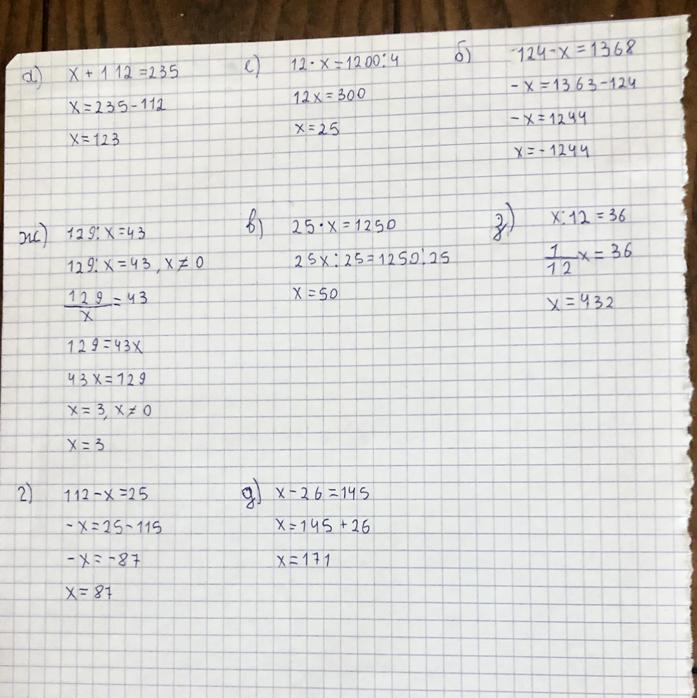 а) x + 112 = 235
x = 235 - 112
x = 123
с) 12 · x = 1200 : 4
12x = 300
x = 25
б) 124 - x = 1368
-x = 1363 - 124
-x = 1244
x = -1244
ж) 129 : x = 43
129 : x = 43, x ≠ 0
129/x = 43
129 = 43x
43x = 129
x = 3, x ≠ 0
x = 3
в) 25 · x = 1250
25x : 25 = 1250 : 25
x = 50
з) x : 12 = 36
1/12 x = 36
x = 432
г) 112 - x = 25
-x = 25 - 115
-x = -87
x = 87
д) x - 26 = 145
x = 145 + 26
x = 171